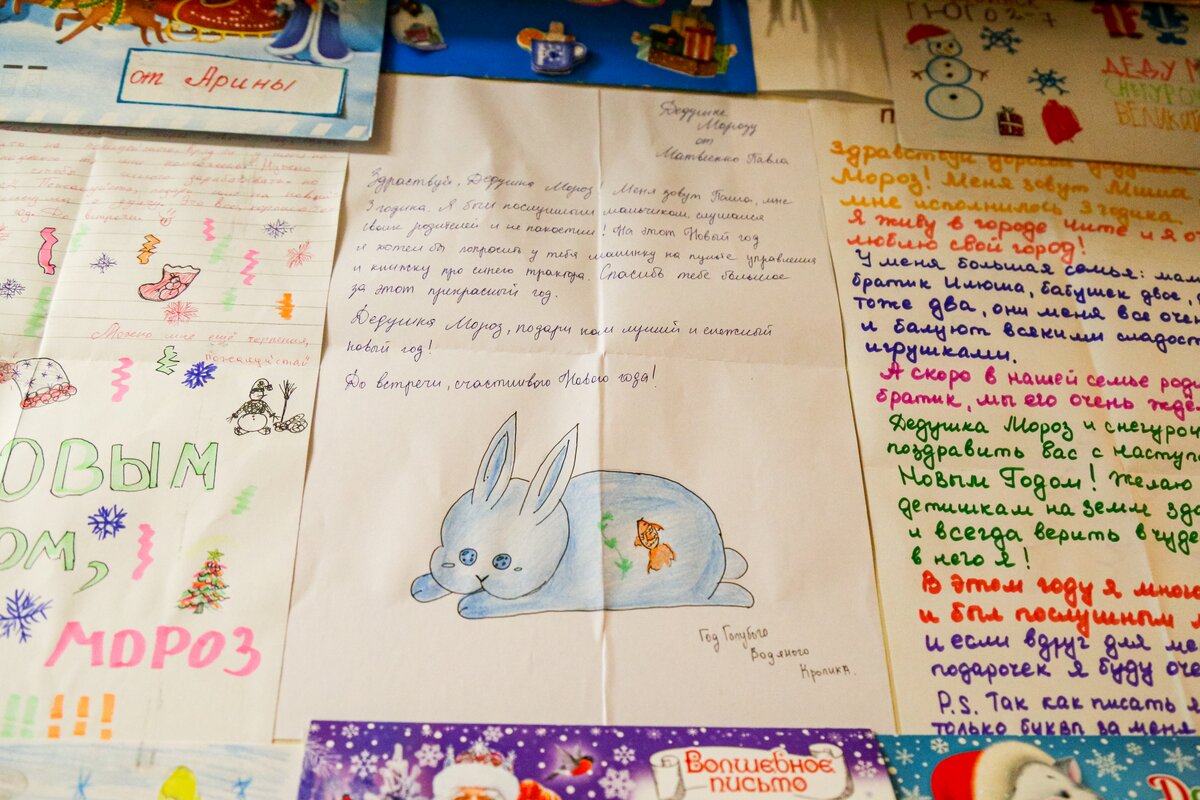 от Арины
Дедушке
Морозу
от
Матвиенко Павла
Здраствуй, Дедушка Мороз! Меня зовут Паша, мне
3 годика. Я был послушным мальчиком, слушался
своих родителей и не пакостил! На этот Новый год
я хотел бы попросить у тебя машинку на пульте управления
и книжку про синего трактора. Спасибо тебе большое
за этот прекрасный год.
Дедушка Мороз, подари нам лучший и снежный
новый год!
До встречи, счастливого Нового года!
Год Голубого
Водяного
Кролика.
Можно мне ещё терпения,
пожалуйста
ОВЫМ
ОМ,
МОРОЗ
!!!!
ДЕДУ М
СНЕГУРО
ВЕЛИКИЙ
Здравствуй дорогой
Мороз! Меня зовут Миша
мне исполнилось 3 годика.
Я живу в городе Чите и я о
люблю свой город!
У меня большая семья: мам
братик Илюша, бабушек двое,
тоже два, они меня все очен
и балуют всякими сладост
игрушками.
А скоро в нашей семье роди
братик, мы его очень ждё
Дедушка Мороз и снегуроч
поздравить вас с наступа
Новым Годом! Желаю
детишкам на земле здо
и всегда верить в чуде
в него я!
В этом году я много
и был послушным м
и если вдруг для ме
подарочек я буду оче
P.S. Так как писать я
только буквы за меня
Волшебное
письмо